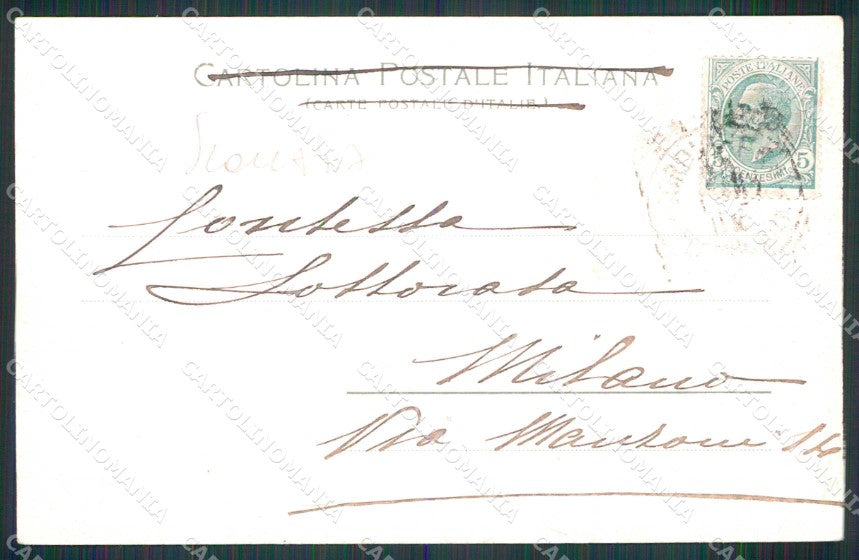 CARTOLINA POSTALE ITALIANA
(CARTE POSTALE D'ITALIE.)
POSTE ITALIANE
CENTESIMI 5
Contessa
Sottocasa
Milano
Via Manzoni
CARTOLINOMANIA